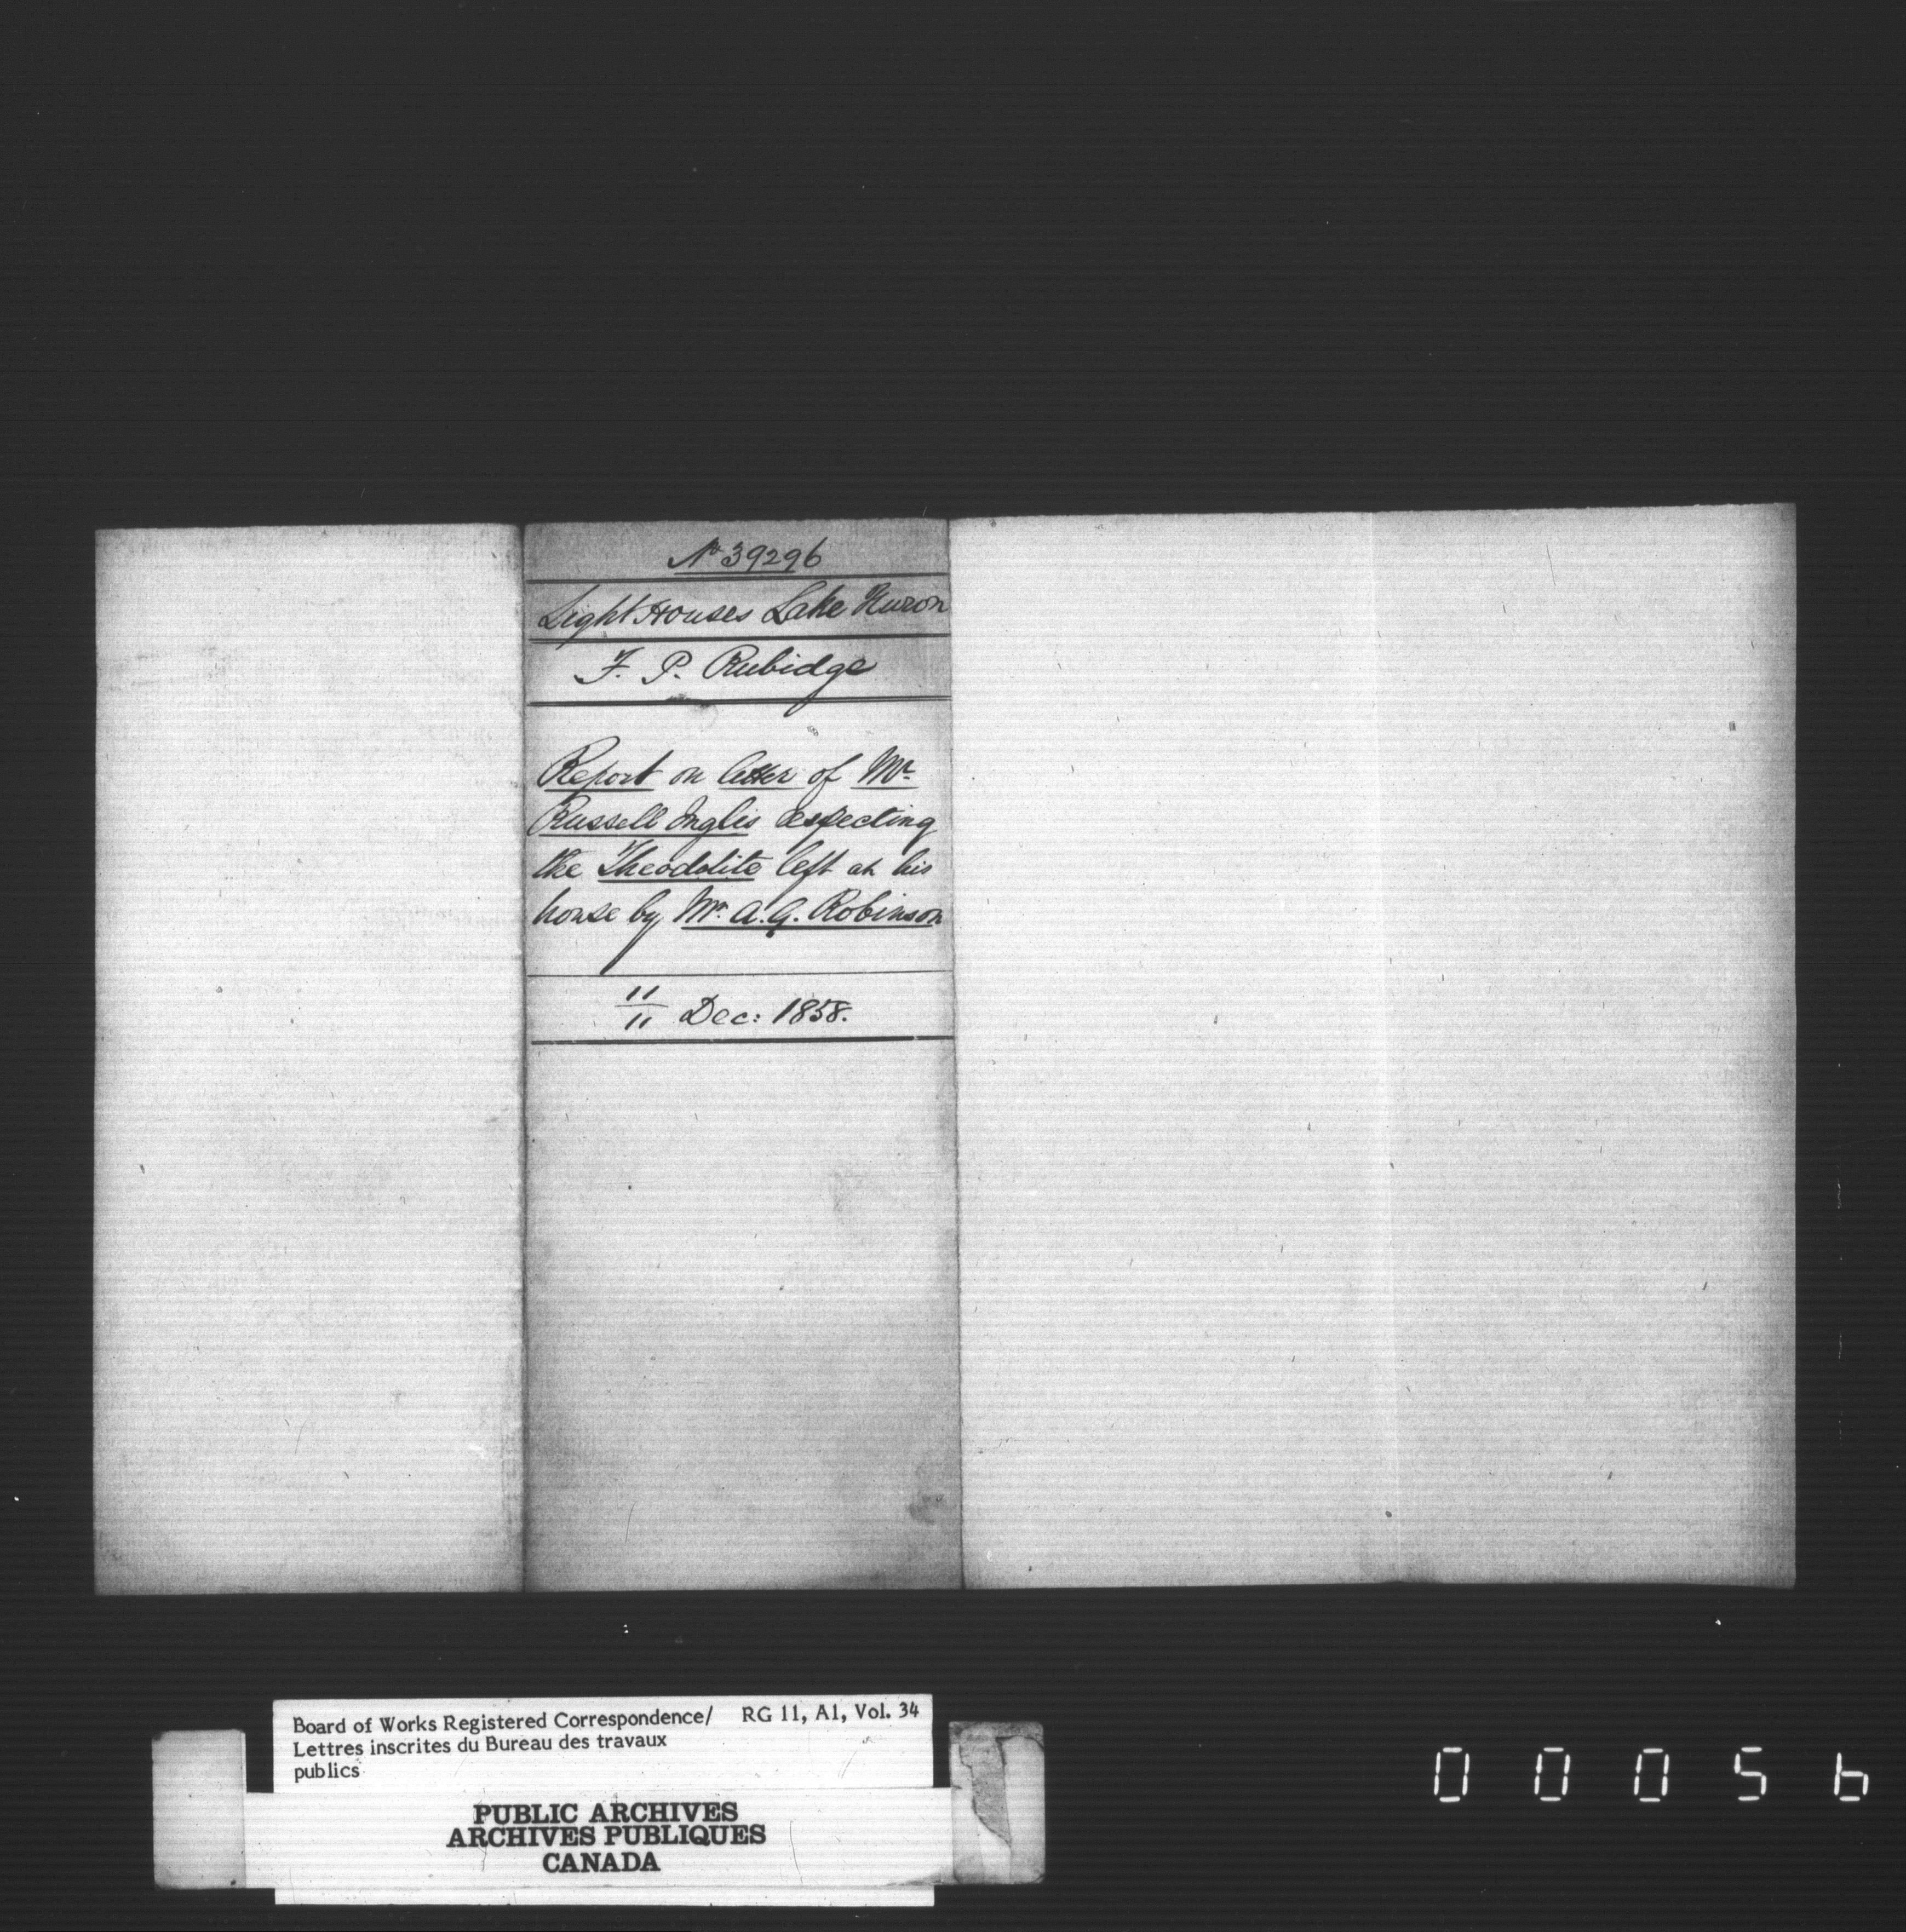 No 39296
Light Houses Lake Huron
F. P. Rubidge
Report on letter of Mr
Russell Inglis respecting
the Theodolite left at his
house by Mr. A. G. Robinson
11/11 Dec: 1858.
Board of Works Registered Correspondence/ RG 11, A1, Vol. 34
Lettres inscrites du Bureau des travaux
publics
PUBLIC ARCHIVES
ARCHIVES PUBLIQUES
CANADA
00056